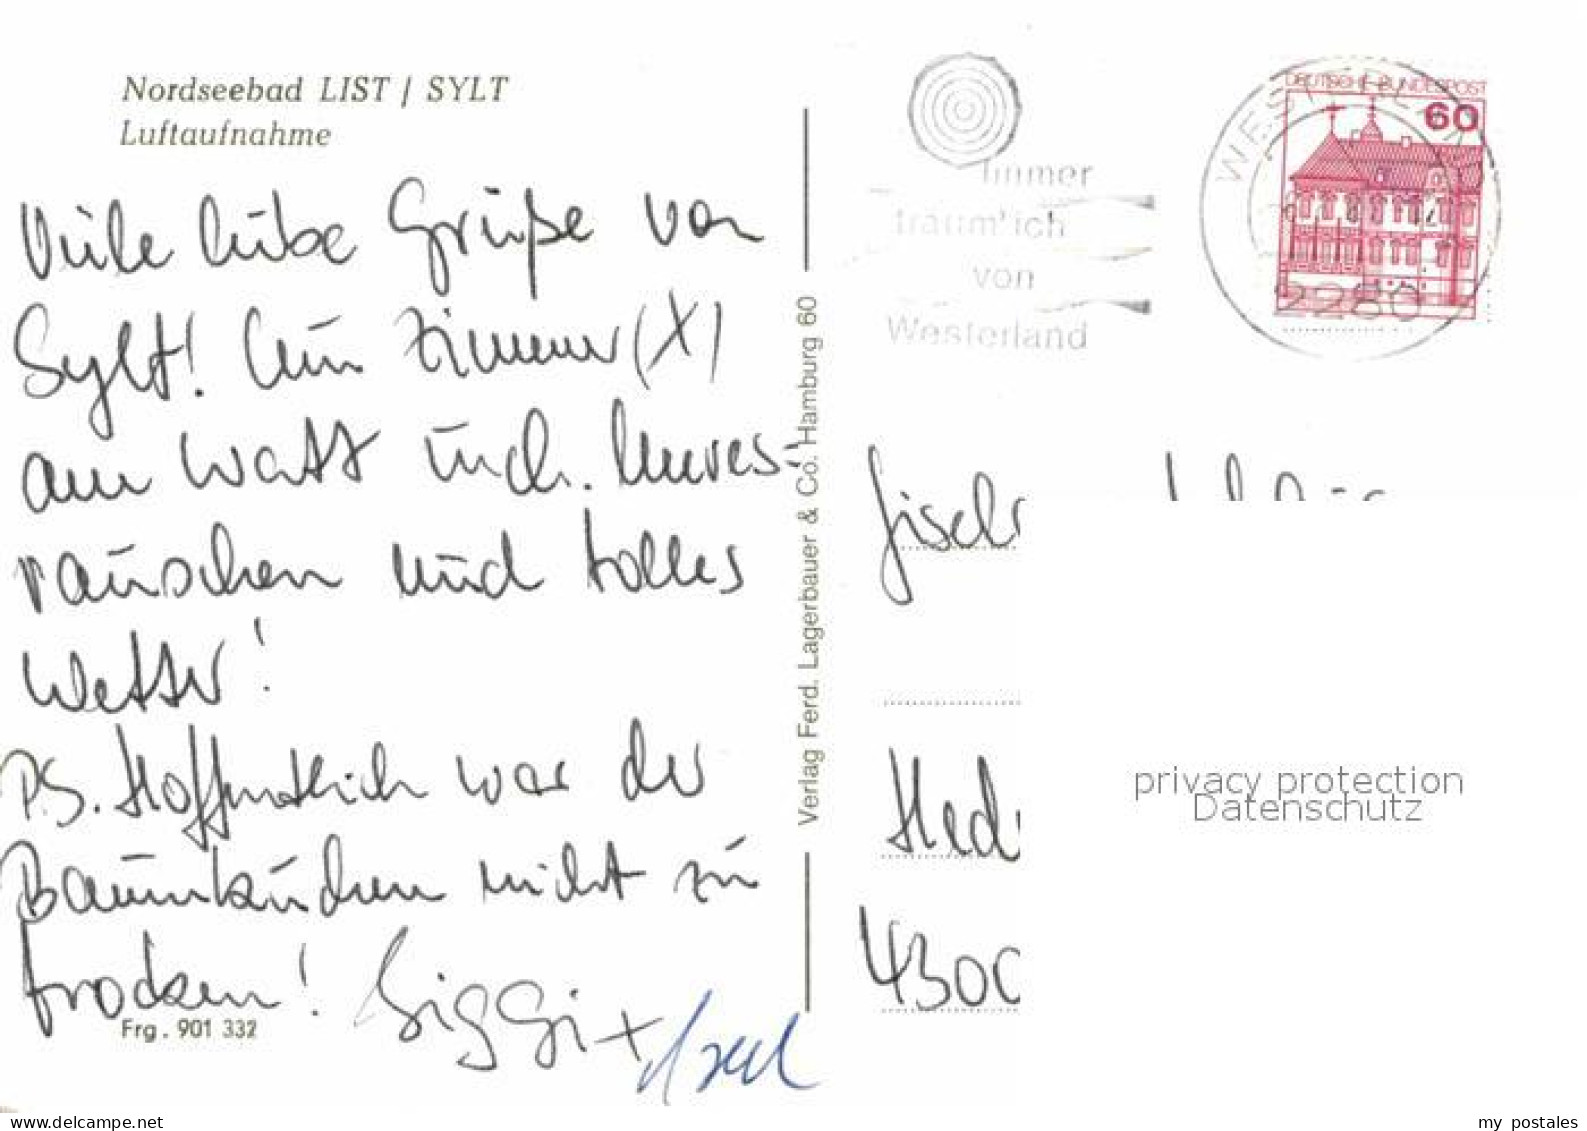 Nordseebad LIST / SYLT
Luftaufnahme
Viele liebe Grüße von
Sylt! Ein Zimmer (X)
am Watt incl. Meeres-
rauschen und tolles
Wetter!
P.S. Hoffentlich war der
Baumkuchen nicht zu
trocken! Siggi + Axel
Frg. 901 332
Verlag Ferd. Lagerbauer & Co. Hamburg 60
Immer
traum'ich
von
Westerland
DEUTSCHE BUNDESPOST
60
WESTERLAND
2280
4300
privacy protection
Datenschutz
www.delcampe.net
my_postales